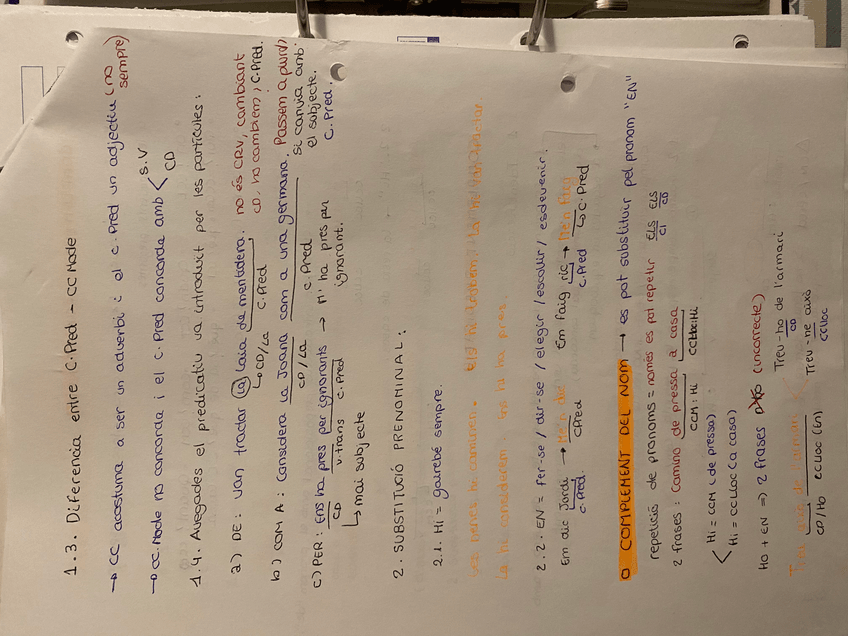 1.3. Diferència entre C.Pred - CC Mode
→ CC acostuma a ser un adverbi i el C.Pred un adjectiu (no sempre)
→ CC. Mode no concorda i el C.Pred concorda amb < S.V
CD
1.4. Avegades el predicatiu va introduit per les partícules:
a) DE: Van tractar (la) Laia de mentidera. no és CRV, cambiant
↳ CD/La C.Pred CD, ho cambiem, C.Pred.
b) COM A: Considera la Joana com a una germana. Passem a plural
CD/La C.Pred si canvia amb
el subjecte.
C.Pred.
c) PER: Ens ha pres per ignorants → M'ha pres per
CD v.trans C.Pred ignorant.
↳ mai subjecte
2. SUBSTITUCIÓ PRENOMINAL:
2.1. Hi = gairebé sempre.
La hi consideren. Ens hi ha pres.
2.2. EN = fer-se / dir-se / elegir / escollir / esdevenir.
Em dic Jordi → Me'n dic Em faig ric → Me'n faig
C.Pred. CPred C.Pred ↳ C.Pred
O COMPLEMENT DEL NOM → es pot substituir pel pronom "EN"
repetició de pronoms = només es pot repetir ELS ELS
CI CD
2 frases: Camino de pressa a casa
CCM: Hi CCLloc: Hi
< Hi = CCM (de pressa)
Hi = CCLloc (a casa)
HO + EN ⇒ 2 frases (incorrecte)
Treu-ho de l'armari
CD
CD/Ho CCLloc (En) Treu-ne això
CCLloc